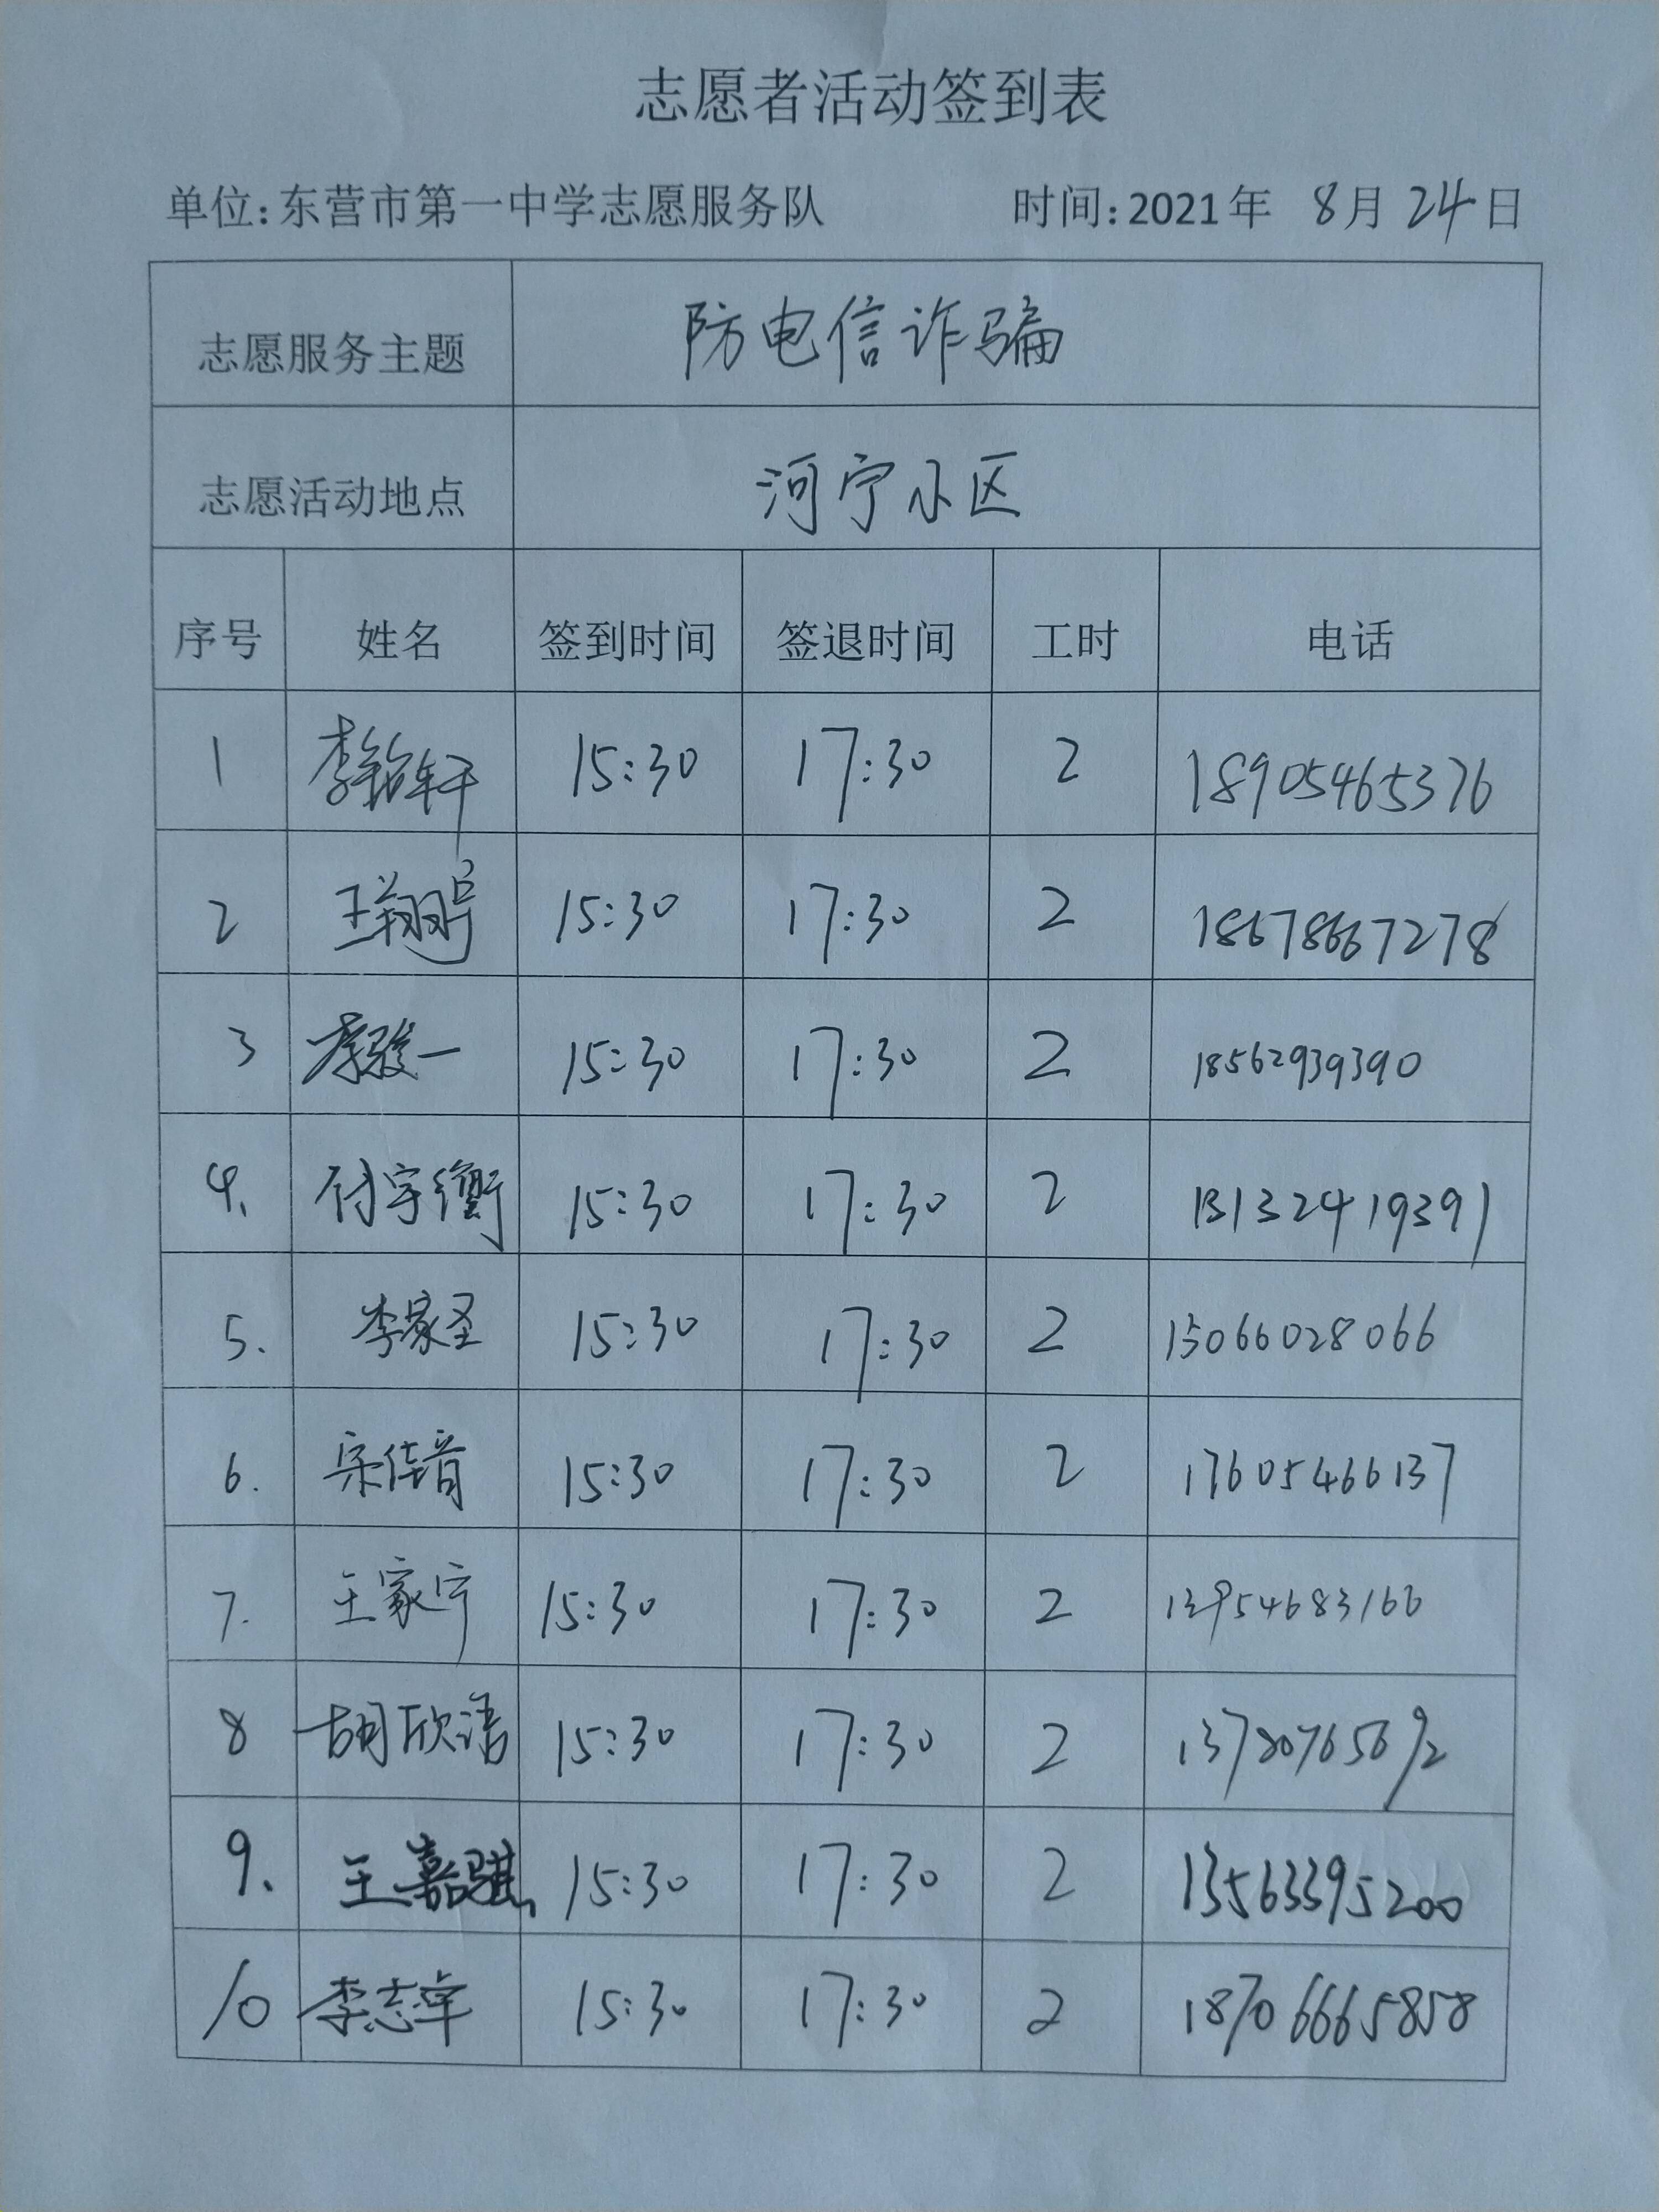 志愿者活动签到表
单位:东营市第一中学志愿服务队 时间:2021年 8月24日
志愿服务主题 防电信诈骗
志愿活动地点 河宁小区
序号 姓名 签到时间 签退时间 工时 电话
1 李铭轩 15:30 17:30 2 18905465376
2 15:30 17:30 2 18678667278
3 李骏一 15:30 17:30 2 18562939390
4. 付宇衡 15:30 17:30 2 13132419391
5. 李家圣 15:30 17:30 2 15066028066
6. 宋佳音 15:30 17:30 2 17605466137
7. 王家宁 15:30 17:30 2 13954683166
8 胡欣语 15:30 17:30 2 13780765692
9. 王嘉骐 15:30 17:30 2 13563395200
10 李志卓 15:30 17:30 2 18706665858